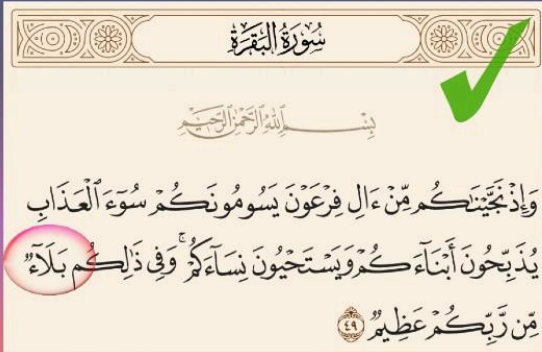 سُورَةُ البَقَرَةِ
بِسْمِ اللَّهِ الرَّحْمَٰنِ الرَّحِيمِ
وَإِذْ نَجَّيْنَٰكُم مِّنْ ءَالِ فِرْعَوْنَ يَسُومُونَكُمْ سُوٓءَ ٱلْعَذَابِ
يُذَبِّحُونَ أَبْنَآءَكُمْ وَيَسْتَحْيُونَ نِسَآءَكُمْ ۚ وَفِى ذَٰلِكُم بَلَآءٌ
مِّن رَّبِّكُمْ عَظِيمٌ ٤٩